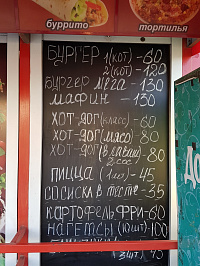 буррито
тортилья
БУРГЕР 1(КОТ)-60
2(КОТ)-120
БУРГЕР МЕГА-130
МАФИН-130
ХОТ-ДОГ(КЛАСС)-60
ХОТ-ДОГ(МЯСО)-80
ХОТ-ДОГ -80
2 СОС
ПИЦЦА (1)-45
СОСИСКА В ТЕСТЕ-35
КАРТОФЕЛЬ ФРИ-60
НАГЕТСЫ(10ШТ)-100
3 ШТ 45